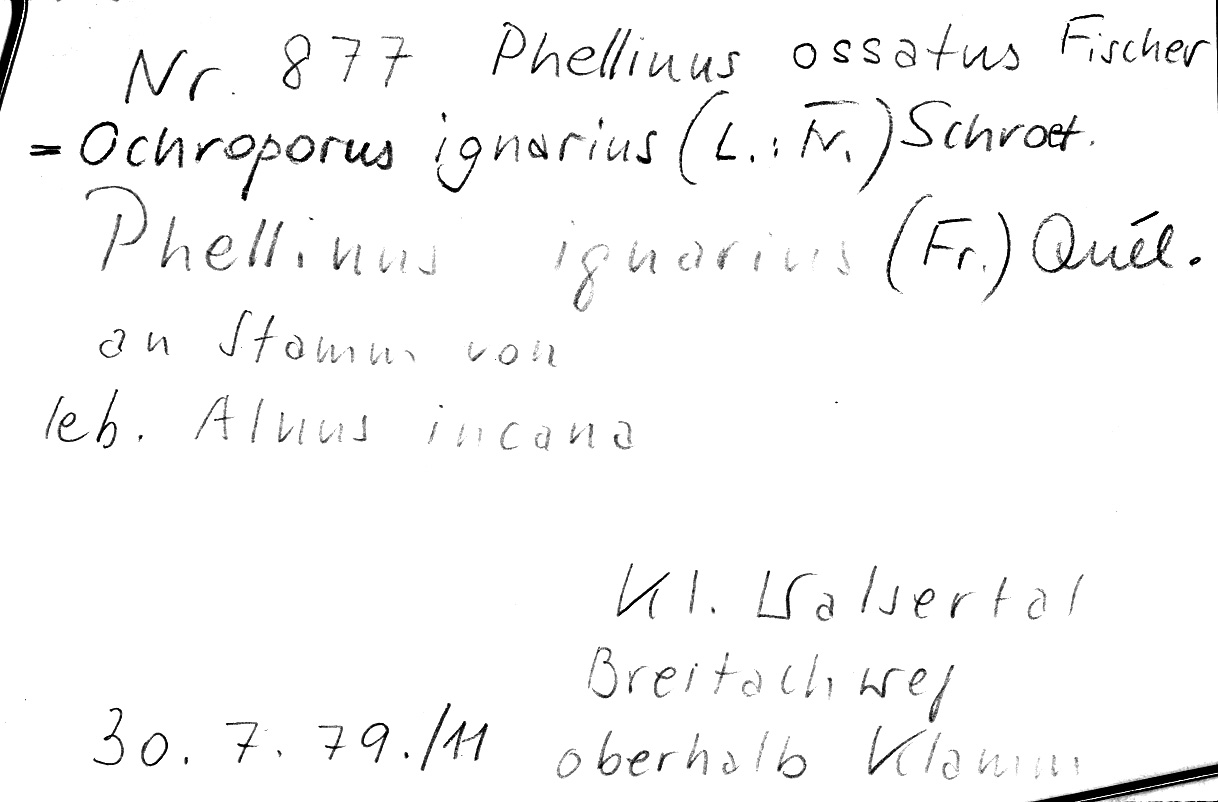 Nr. 877 Phellinus ossatus Fischer
= Ochroporus ignarius (L.: Fr.) Schroet.
Phellinus ignarius (Fr.) Quél.
an Stamm von
leb. Alnus incana
Kl. Walsertal
Breitachweg
30. 7. 79./11 oberhalb Klamm